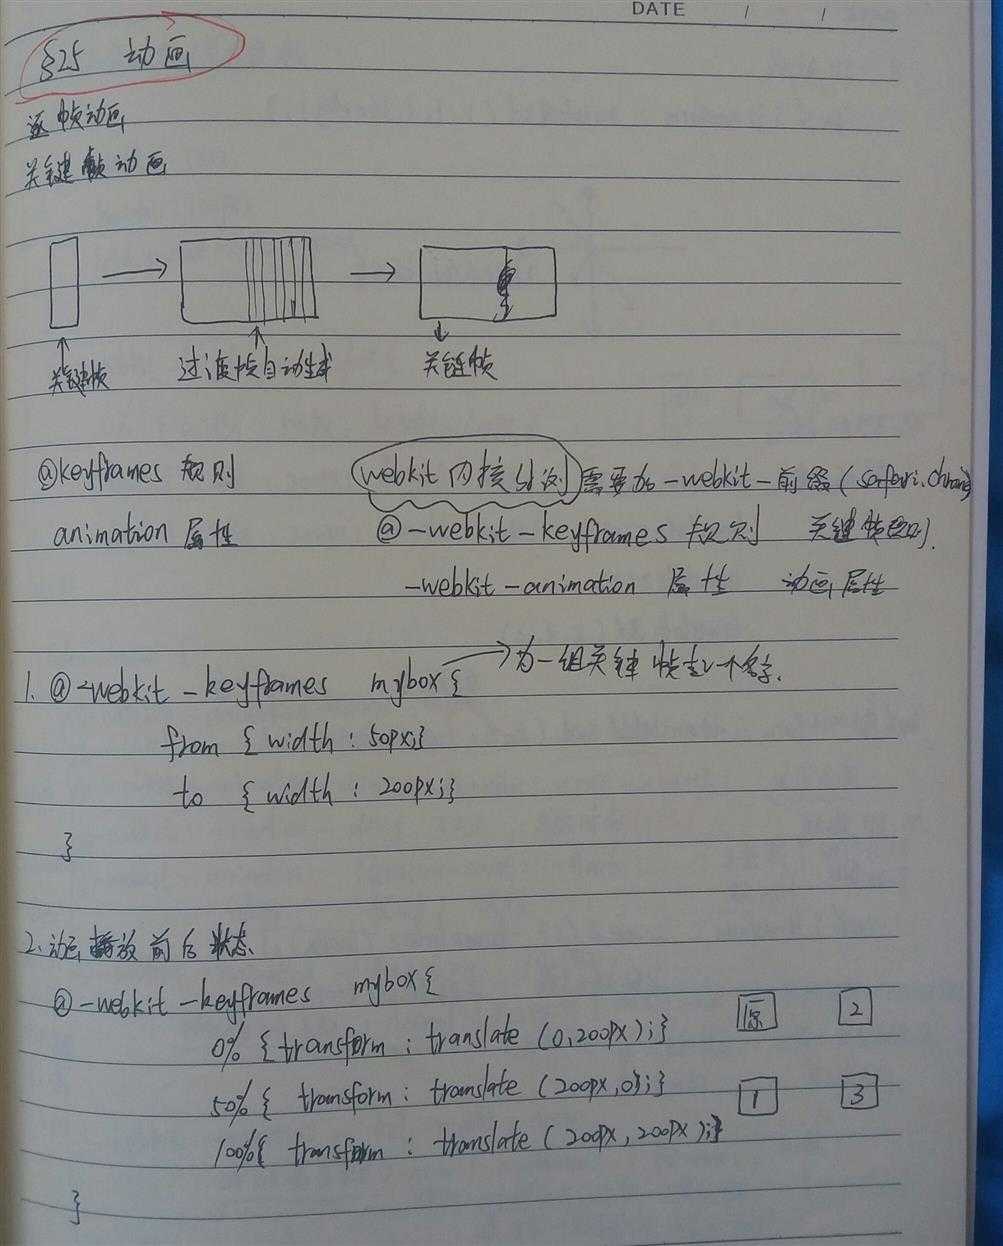 DATE / /
§25 动画
逐帧动画
关键帧动画
关键帧 过渡帧自动生成 关键帧
@keyframes 规则 webkit内核 需要加-webkit-前缀(safari.chrome)
animation 属性 @-webkit-keyframes 规则 关键帧规则.
-webkit-animation 属性 动画属性
1. @-webkit-keyframes mybox{ →为一组关键帧起个名字.
from { width : 50px;}
to { width : 200px;}
}
2.动画播放前后状态
@-webkit-keyframes mybox{
0% {transform : translate (0,200px);} 原 2
50% { transform : translate (200px,0);} 1 3
100%{ transform : translate (200px,200px);}
}